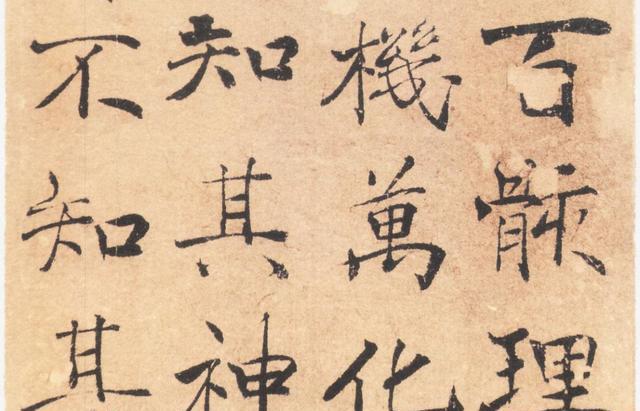 百骸理
機萬化
知其神
不知其